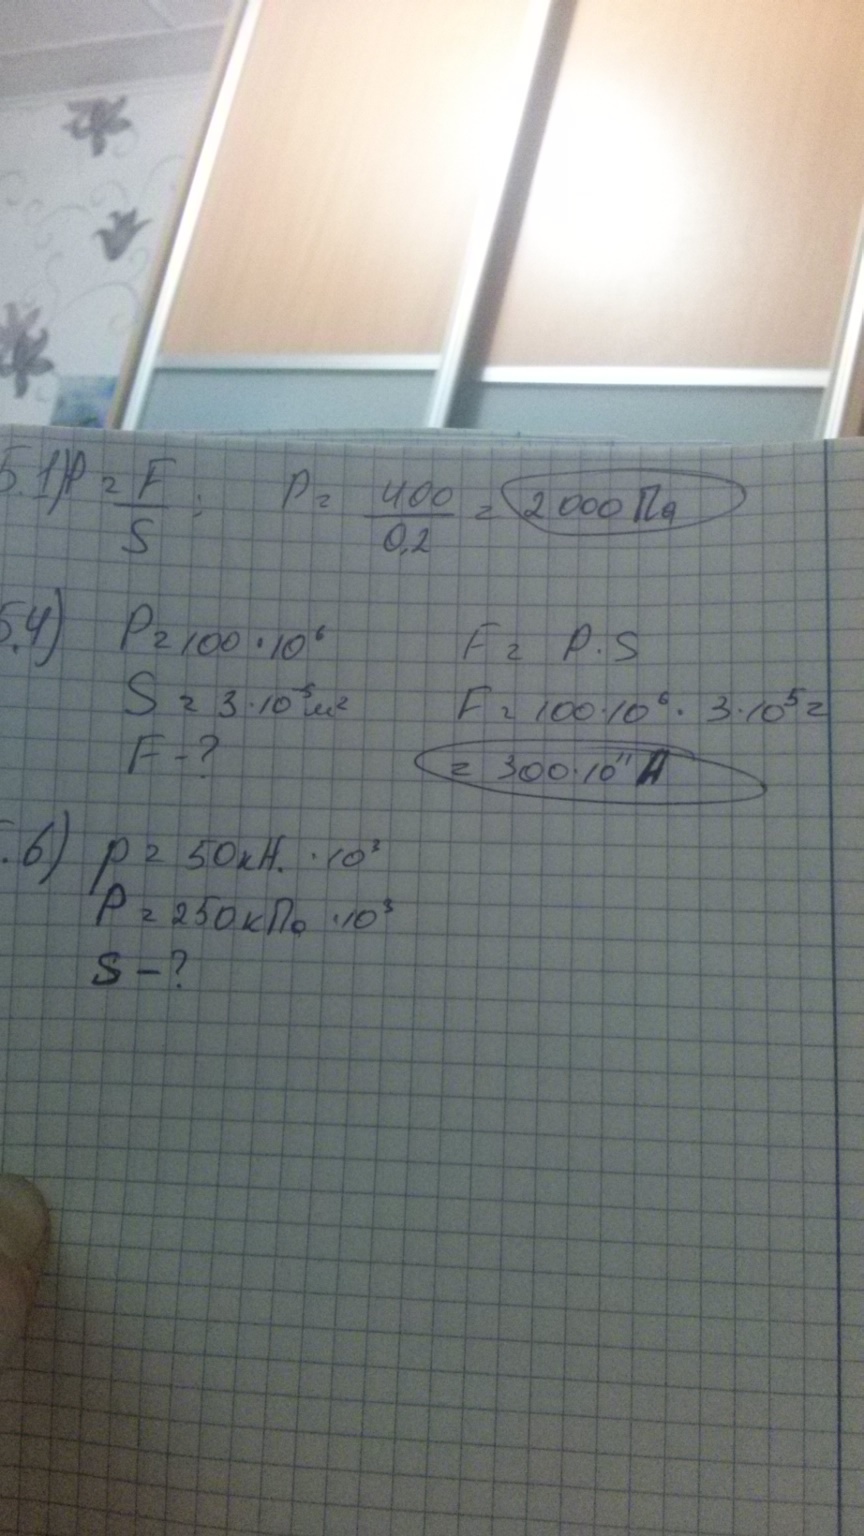 5.1) P = F/S ; P = 400/0,2 = 2000 Па
5.4) P = 100·10⁶ F = P·S
S = 3·10⁻⁵ м² F = 100·10⁶·3·10⁵ =
F - ? = 300·10¹¹ Н
.6) p = 50кН. ·10³
P = 250кПа ·10³
S - ?